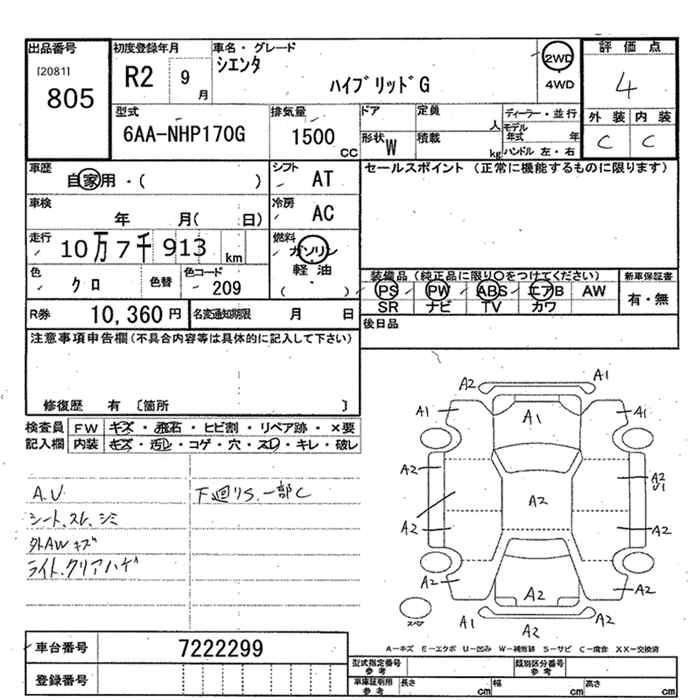 出品番号
[2081]
805
初度登録年月
R2 9 月
車名・グレード
シエンタ
ハイブリッドG
2WD
4WD
評価点
4
外装 内装
C C
型式
6AA-NHP170G
排気量
1500 CC
ドア
定員
人
形状 W
積載
kg
ディーラー・並行
モデル年式 年
ハンドル 左・右
車歴
自家用・( )
シフト
AT
車検
年 月( 日)
冷房
AC
走行
10万7千913 km
燃料
ガソリン
軽油
( )
色
クロ
色替
色コード
209
R券 10,360円
名変通知期限 月 日
セールスポイント (正常に機能するものに限ります)
装備品(純正品に限り○をつけてください)
新車保証書
PS PW ABS エアB AW
SR ナビ TV カワ
有・無
後日品
注意事項申告欄(不具合内容等は具体的に記入して下さい)
修復歴 有 〔箇所 〕
検査員記入欄
FW キズ・飛石・ヒビ割・リペア跡・×要
内装 キズ・汚レ・コゲ・穴・スレ・キレ・破レ
A.V
シート.スレ.シミ
外AWキズ
ライト.クリアハゲ
下廻りS.一部C
A2 A1
A1 A1 A1
A2 A2 A2
U1
A2 A2
A2 A2 A2
A1 A2 A2
スペア
A-キズ E-エクボ U-凹み W-補修跡 S-サビ C-腐食 XX-交換済
車台番号 7222299
登録番号
型式指定番号 参考
類別区分番号 参考
車庫証明用 参考
長さ cm
幅 cm
高さ cm